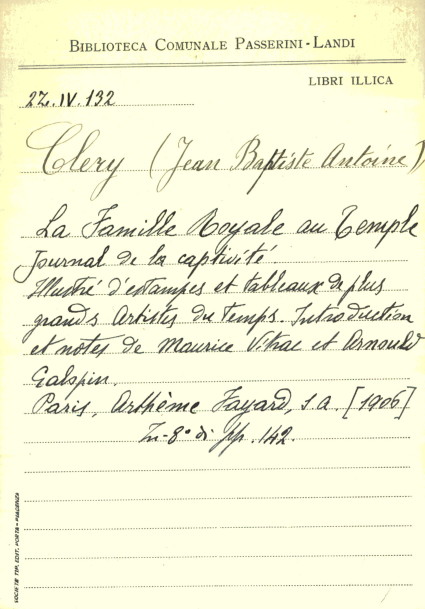 BIBLIOTECA COMUNALE PASSERINI-LANDI
LIBRI ILLICA
2Z.IV.132
Clery (Jean Baptiste Antoine)
La Famille Royale au Temple
Journal de la captivité.
Illustré d'estampes et tableaux de plus
grands Artistes du Temps. Introduction
et notes de Maurice Vitrac et Arnould
Galopin.
Paris, Arthème Fayard, s.a. [1906]
In-8° di pp. 142.